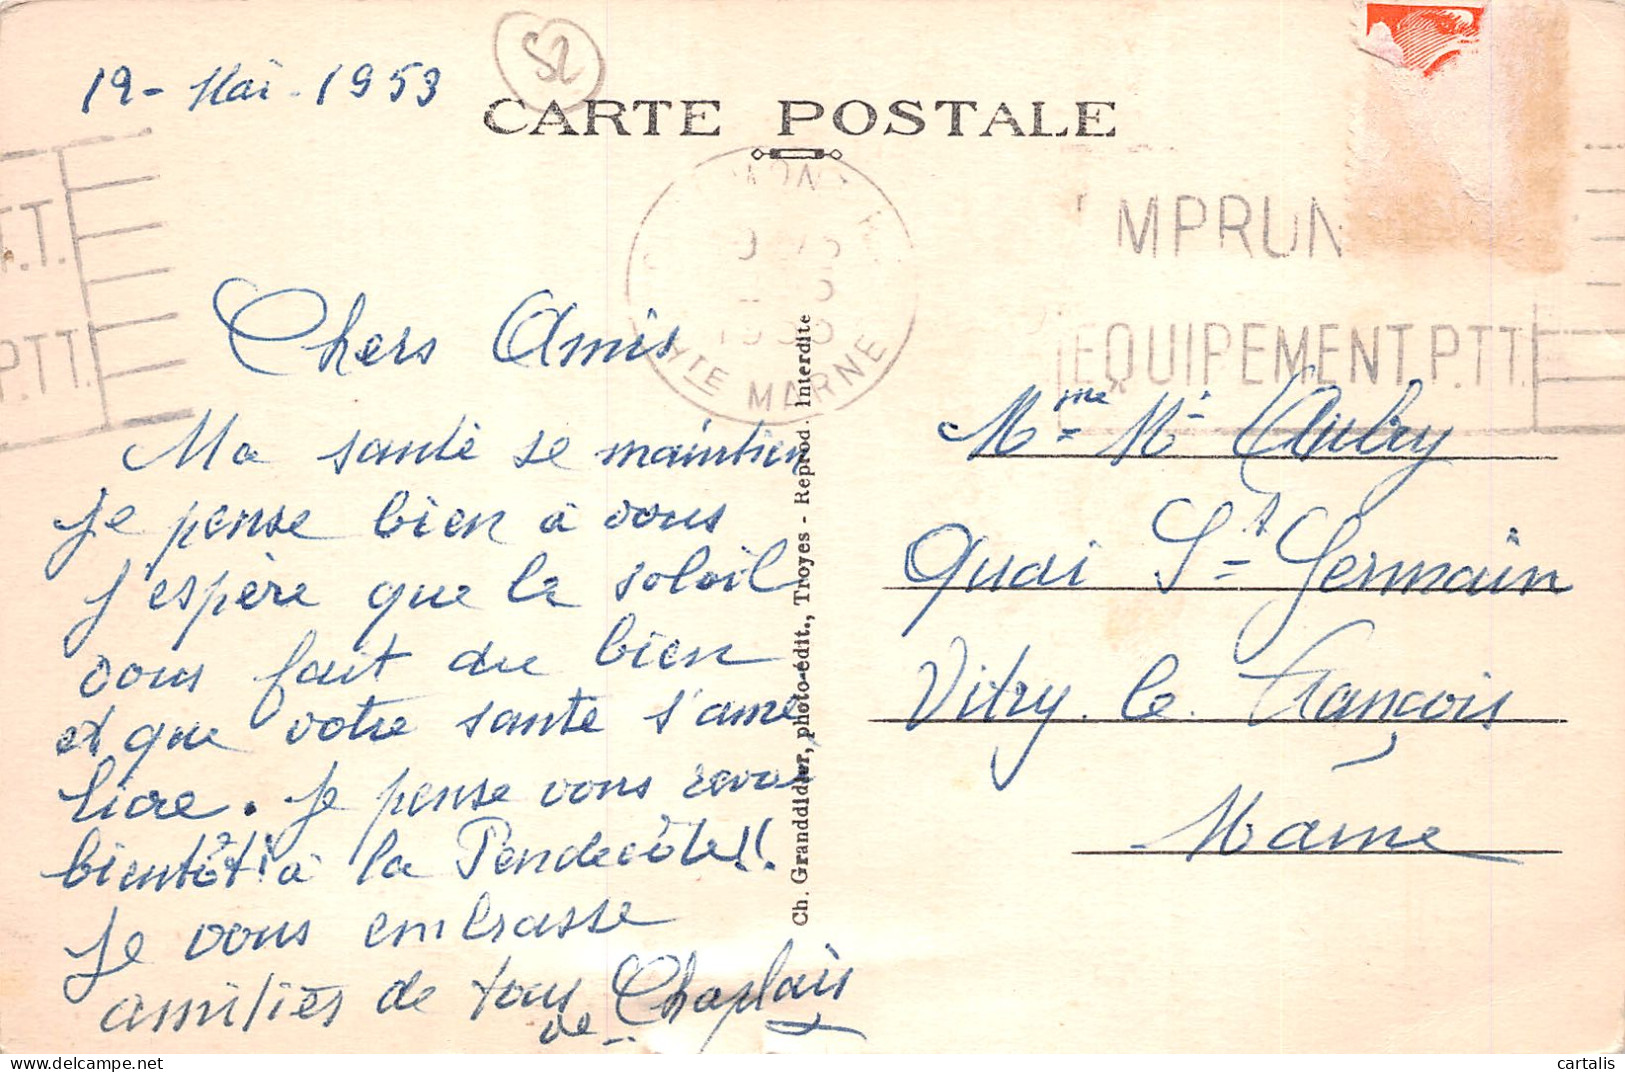 52
19 - Mai - 1953
CARTE POSTALE
MPRUN
EQUIPEMENT P.T.T.
T.T.
P.T.T.
1953
HTE MARNE
Chers Amis
Ma santé se maintien
je pense bien à vous
j'espère que le soleil
vous fait du bien
et que votre santé s'amé
liore. je pense vous revoir
bientôt ! à la Pendecôte !!
je vous embrasse
amitiés de tous
de Chaplais
Ch. Granddidier, photo-édit., Troyes - Reprod. Interdite
Mme Mr Aubry
Quai St Germain
Vitry. le. François
Marne
cartalis